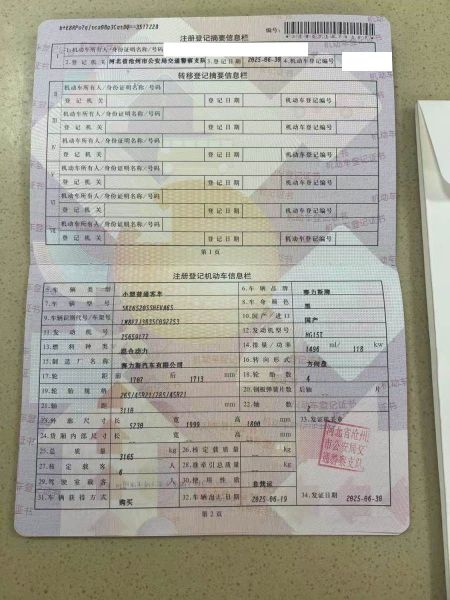 注册登记摘要信息栏
编号：
1.机动车所有人/身份证明名称/号码
2.登记机关 河北省沧州市公安局交通警察支队 3.登记日期 2025-06-30 4.机动车登记编号
转移登记摘要信息栏
Ⅱ 机动车所有人/身份证明名称/号码
登记机关 登记日期 机动车登记编号
Ⅲ 机动车所有人/身份证明名称/号码
登记机关 登记日期 机动车登记编号
Ⅳ 机动车所有人/身份证明名称/号码
登记机关 登记日期 机动车登记编号
Ⅴ 机动车所有人/身份证明名称/号码
登记机关 登记日期 机动车登记编号
Ⅵ 机动车所有人/身份证明名称/号码
登记机关 登记日期 机动车登记编号
Ⅶ 机动车所有人/身份证明名称/号码
登记机关 登记日期 机动车登记编号
第1页
注册登记机动车信息栏
5.车辆类型 小型普通客车 6.车辆品牌 赛力斯牌
7.车辆型号 8.车身颜色 黑
9.车辆识别代号/车架号 10.国产/进口 国产
11.发动机号 12.发动机型号 HG15T
13.燃料种类 混合动力 14.排量/功率 1496 ml/ 118 kw
15.制造厂名称 赛力斯汽车有限公司 16.转向形式 方向盘
17.轮距 前 1707 后 1713 mm 18.轮胎数
19.轮胎规格 20.钢板弹簧片数 后轴 片
21.轴距 3110 mm 22.轴数
23.外廓尺寸 长 5230 宽 1999 高 1800 mm 33.发证机关章
24.货厢内部尺寸 长 宽 高 mm
25.总质量 3165 kg 26.核定载质量 kg
27.核定载客 6 人 28.准牵引总质量 kg
29.驾驶室载客 人 30.使用性质 非营运
31.车辆获得方式 购买 32.车辆出厂日期 2025-06-19 34.发证日期 2025-06-30
河北省沧州
市公安局交
通警察支队
第2页